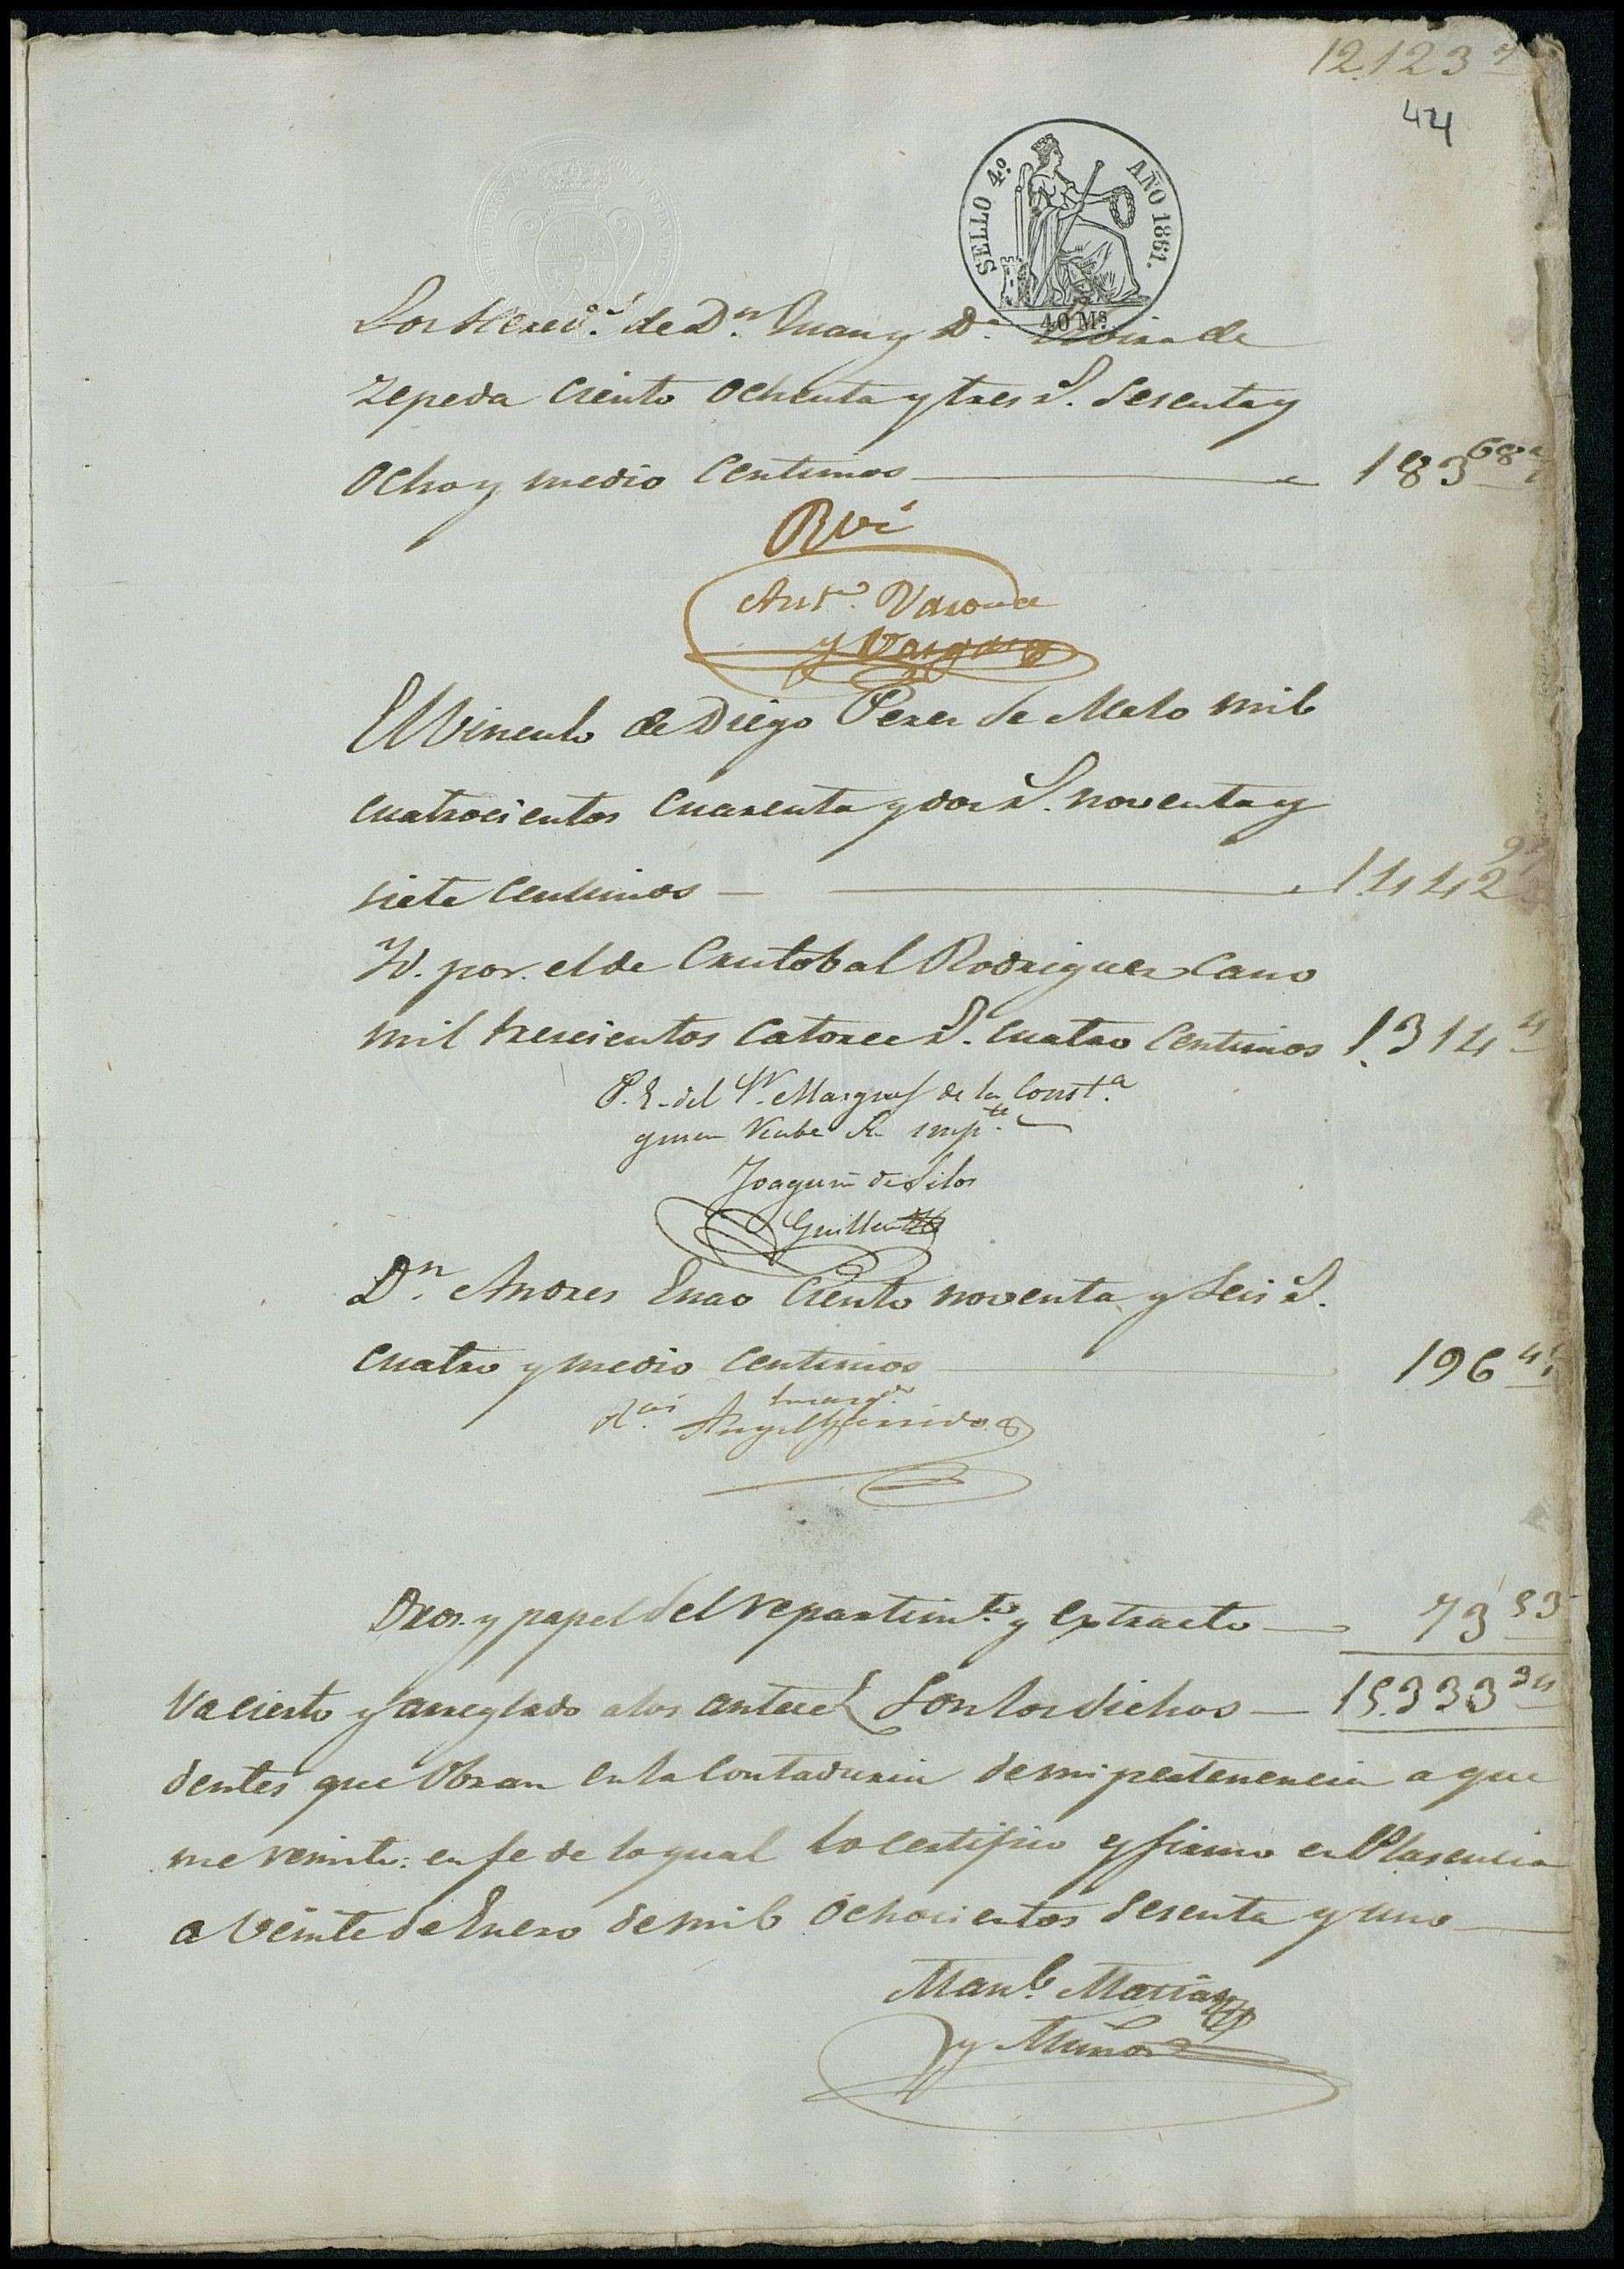 12.123 7
44
SELLO 4º AÑO 1861.
40 Ms
Los Hered.s de Dn. Juan y Da. de
Zepeda ciento ochenta y tres r.s sesenta y
ocho y medio centimos 183 68
Rví
Anto. Varona
y Vargas
El Vinculo de Diego Perez de Melo mil
cuatrocientos cuarenta y dos r.s noventa y
siete centimos 1.442 97
Yd. por el de Cristobal Rodriguez Cano
mil trescientos catorce r.s cuatro centimos 1.314 4
P. E. del Sr. Marques de la Const.a
quien recibe su imp.te
Joaquin de Silos
Guillen
Dn. Andres Enao ciento noventa y seis r.s
cuatro y medio centimos 196 4
R.ví Encarg.do
Angel Garrido
Dros. y papel del repartim.to y extracto 73 53
Va cierto y arreglado a los antece Son los dichos 15.333 34
dentes que obran en la Contaduria de mi pertenencia a que
me remito: en fe de lo qual lo certifico y firmo en Plasencia
a veinte de Enero de mil ochocientos sesenta y uno
Manl. Matias
y Muñoz